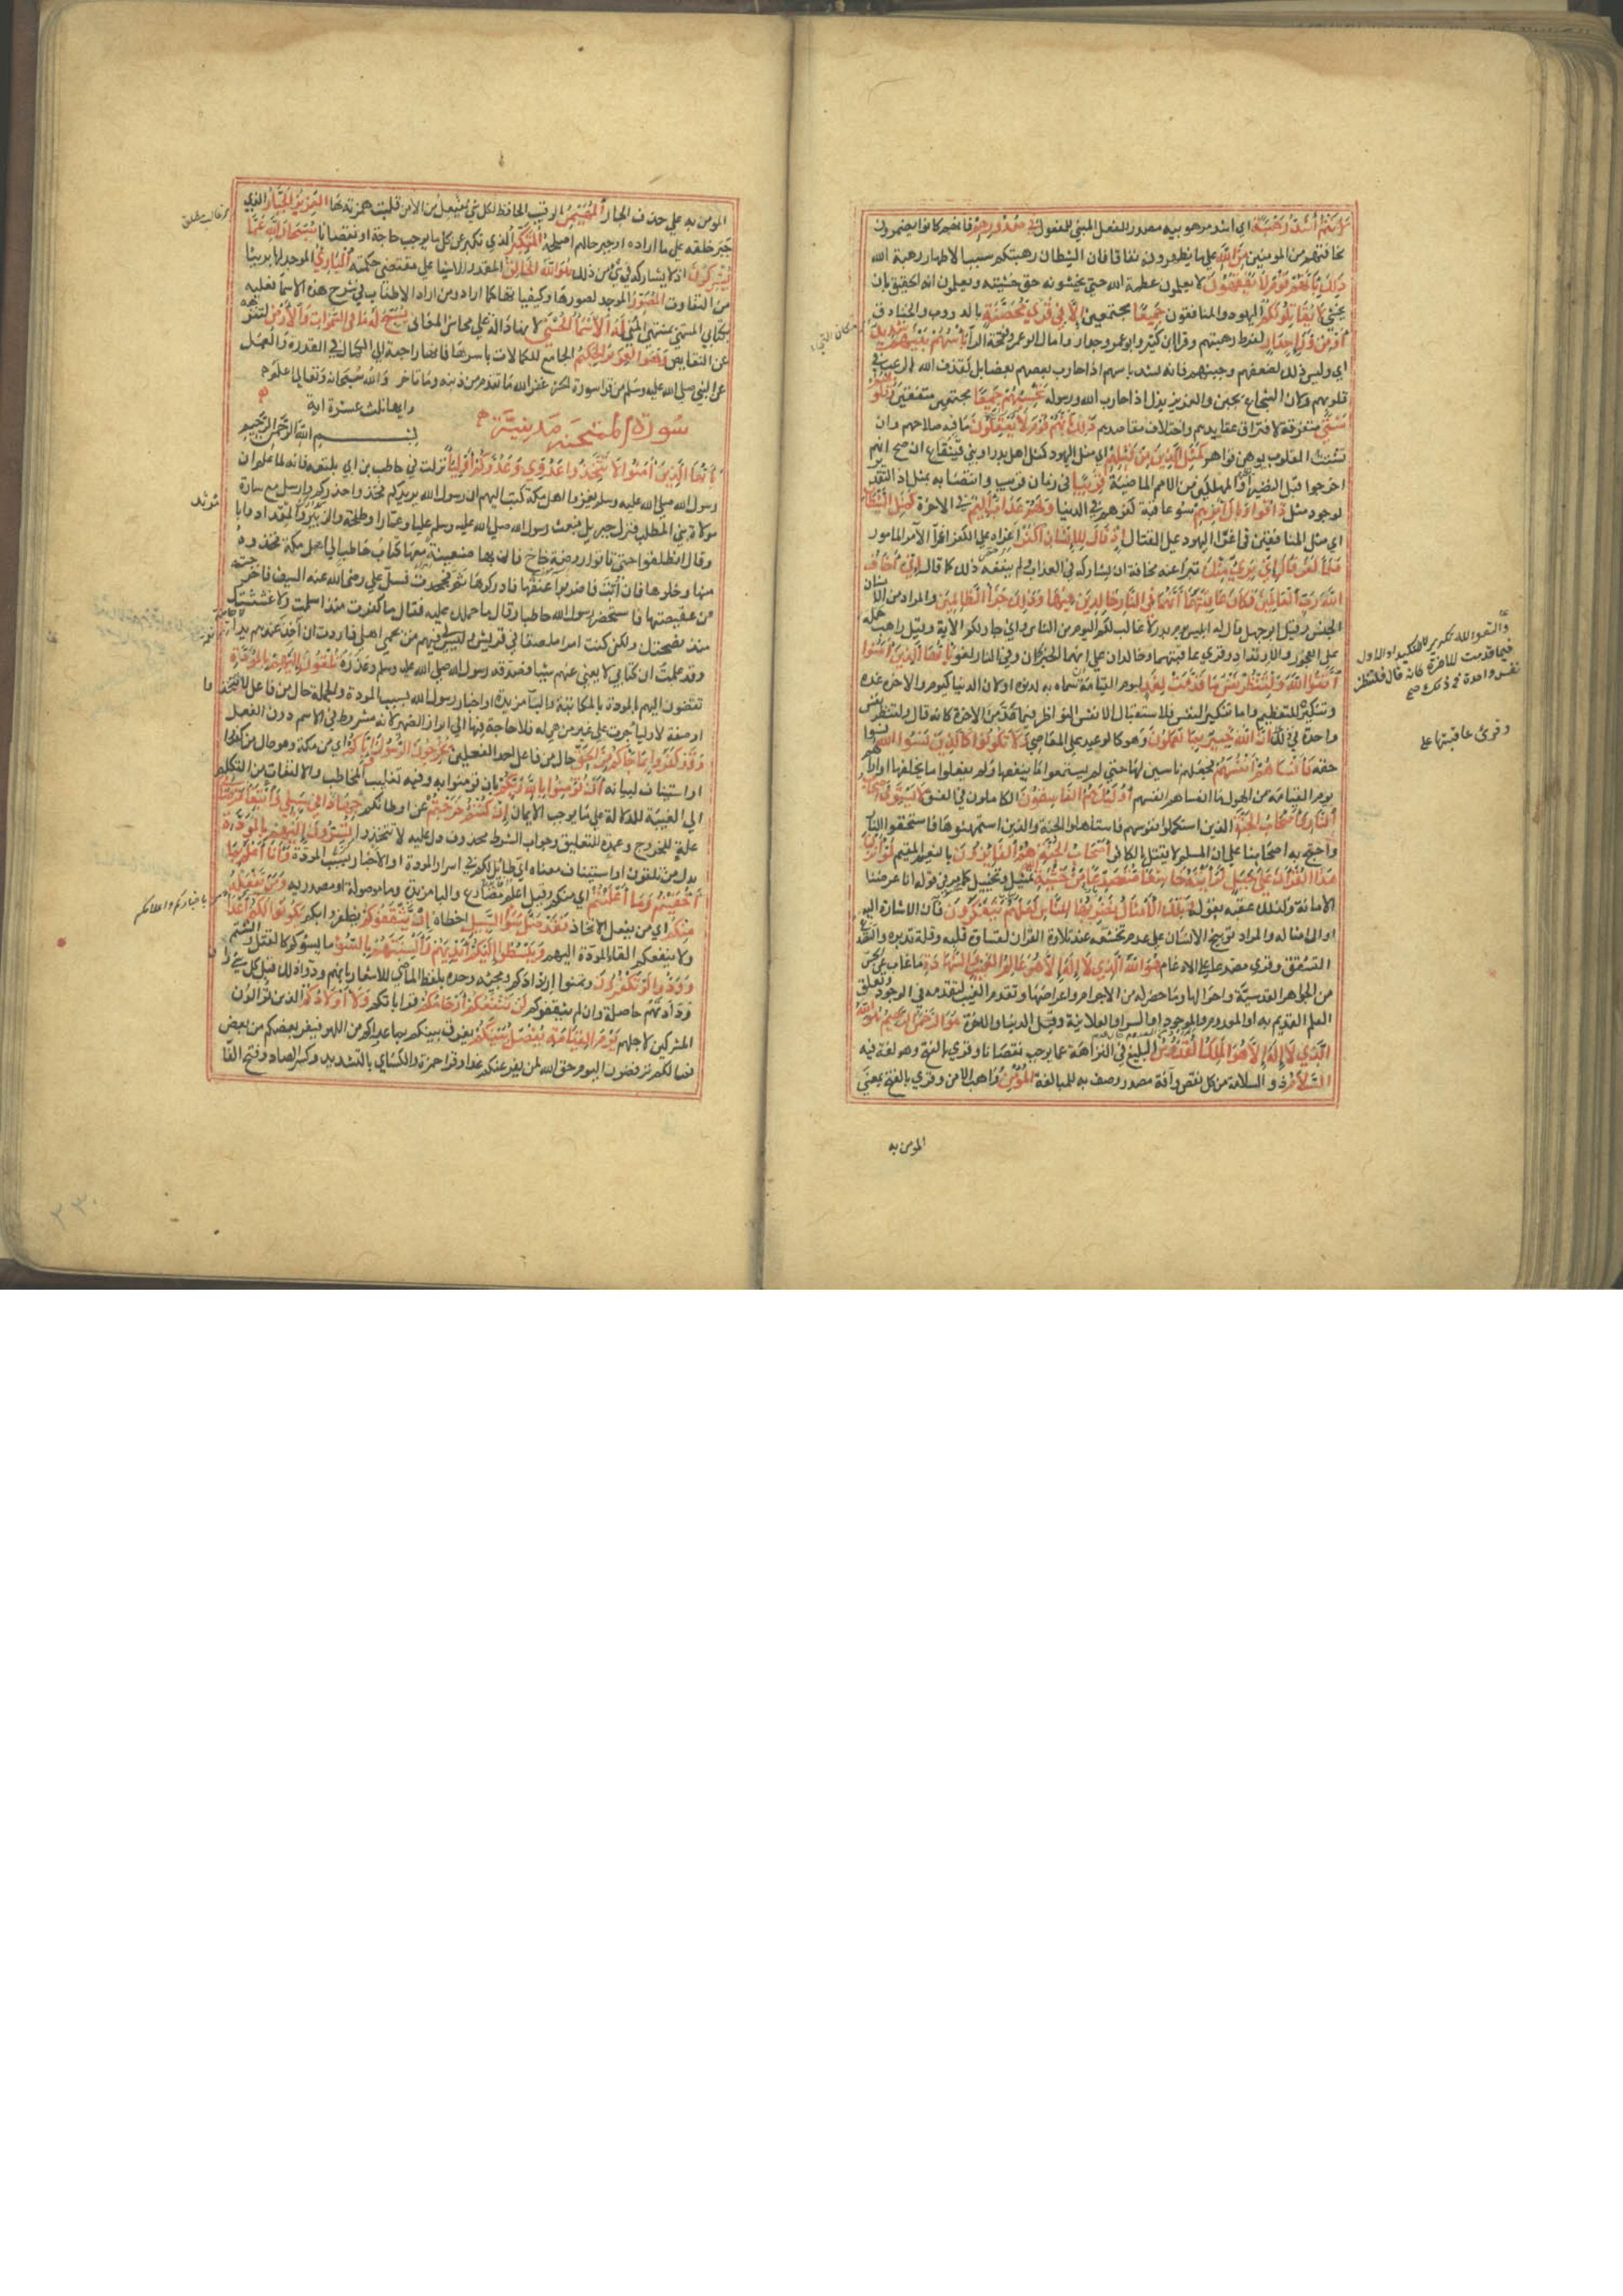 لأنتم أشد رهبة اي اشد مرهوبية مصدر للفعل المبني للمفعول في صدورهم فانهم كانوا يضمرون
مخافتهم من المومنين من الله على ما يظهرونه نفاقا فان استبطان رهبتكم سبب لاظهار رهبة الله
ذلك بأنهم قوم لا يفقهون لا يعلمون عظمة الله حتى يخشونه حق خشيته ويعلمون انه الحقيق بان
يخشى لا يقاتلونكم اليهود والمنافقون جميعا مجتمعين إلا في قرى محصنة بالدروب والخنادق
أو من وراء جدار لفرط رهبتهم وقرا ابن كثير وابو عمرو جدار وامال ابو عمرو فتحة الدال بأسهم بينهم شديد
اي وليس ذلك لضعفهم وجبنهم فانه يشتد باسهم اذا حارب بعضهم بعضا بل لقذف الله الرعب في
قلوبهم ولان الشجاع يجبن والعزيز يذل اذا حارب الله ورسوله تحسبهم جميعا مجتمعين متفقين وقلوبهم
شتى متفرقة لافتراق عقايدهم واختلاف مقاصدهم ذلك بأنهم قوم لا يعقلون ما فيه صلاحهم وان
تشتت القلوب يوهن قواهم كمثل الذين من قبلهم اي مثل اليهود كمثل اهل بدر او بني قينقاع ان صح انهم
اخرجوا قبل النضير او المهلكين من الامم الماضية قريبا في زمان قريب وانتصابه بمثل اذ التقدير
لوجود مثل ذاقوا وبال أمرهم سوء عاقبة كفرهم في الدنيا ولهم عذاب أليم في الاخرة كمثل الشيطان
اي مثل المنافقين في اغراء اليهود على القتال إذ قال للإنسان اكفر اغراه على الكفر اغراء الآمر المامور
فلما كفر قال إني بريء منك تبرأ عنه مخافة ان يشاركه في العذاب ولم ينفعه ذلك كما قال إني أخاف
الله رب العالمين فكان عاقبتهما أنهما في النار خالدين فيها وذلك جزاء الظالمين والمراد من الانسان
الجنس وقيل ابو جهل قال له ابليس يوم بدر لا غالب لكم اليوم من الناس واني جار لكم الآية وقيل راهب حمله
على الفجور والارتداد وقرى عاقبتهما وخالدان على انهما الخبر لان وفي النار لغو يا أيها الذين آمنوا
اتقوا الله ولتنظر نفس ما قدمت لغد ليوم القيامة سماه به لدنوه او لان الدنيا كيوم والاخرة غده
وتنكيره للتعظيم واما تنكير النفس فلاستقبال الانفس النواظر فيما قدمن للاخرة كانه قال ولتنظر نفس
واحدة في ذلك إن الله خبير بما تعملون وهو كالوعيد على المعاصي ولا تكونوا كالذين نسوا الله نسوا
حقه فأنساهم أنفسهم فجعلهم ناسين لها حتى لم يسمعوا ما ينفعها ولم يفعلوا ما يخلصها او اراهم
يوم القيامة من الهول ما انساهم انفسهم أولئك هم الفاسقون الكاملون في الفسق لا يستوي أصحاب
النار وأصحاب الجنة الذين استكملوا نفوسهم فاستاهلوا الجنة والذين استمهنوها فاستحقوا النار
واحتج به اصحابنا على ان المسلم لا يقتل بالكافر أصحاب الجنة هم الفائزون بالنعيم المقيم لو أنزلنا
هذا القرآن على جبل لرأيته خاشعا متصدعا من خشية الله تمثيل وتخييل كما مر في قوله انا عرضنا
الامانة ولذلك عقبه بقوله وتلك الأمثال نضربها للناس لعلهم يتفكرون فان الاشارة اليه
او الى امثاله والمراد توبيخ الانسان على عدم تخشعه عند تلاوة القران لقساوة قلبه وقلة تدبره والتصدع
التشقق وقرى مصدعا على الادغام هو الله الذي لا إله إلا هو عالم الغيب والشهادة ما غاب عن الحس
من الجواهر القدسية واحوالها وما حضر له من الاجرام واعراضها وتقدم الغيب لتقدمه في الوجود وتعلق
العلم القديم به او المعدوم والموجود او السر والعلانية وقيل الدنيا والاخرة هو الرحمن الرحيم هو الله
الذي لا إله إلا هو الملك القدوس البليغ في النزاهة عما يوجب نقصانا وقرى بالفتح وهو لغة فيه
السلام ذو السلامة من كل نقص وآفة مصدر وصف به للمبالغة المؤمن واهب الامن وقرى بالفتح بمعنى
المومن به
واتقوا الله تكرير للتاكيد او الاول
وقرئ عاقبتهما على
المومن به على حذف الجار المهيمن الرقيب الحافظ لكل شي مفيعل من الامن قلبت همزته ها العزيز الجبار الذي
جبر خلقه على ما اراده او جبر حالهم اصلحه المتكبر الذي تكبر عن كل ما يوجب حاجة او نقصانا سبحان الله عما
يشركون اذ لا يشاركه في شي من ذلك هو الله الخالق المقدر للاشيا على مقتضى حكمته البارئ الموجد لها بريئا
من التفاوت المصور الموجد لصورها وكيفياتها كما اراد ومن اراد الاطناب في شرح هذه الاسما فعليه
بكتابي المسمى بمنتهى المنى له الأسماء الحسنى لانها دالة على محاسن المعاني يسبح له ما في السموات والأرض لتنزهه
عن النقايص وهو العزيز الحكيم الجامع للكمالات باسرها فانها راجعة الى الكمال في القدرة والعلم
عن النبي صلى الله عليه وسلم من قرا سورة الحشر غفر الله ما تقدم من ذنبه وما تاخر والله سبحانه وتعالى اعلم
سورة الممتحنة مدنية وايها ثلث عشرة اية
بسم الله الرحمن الرحيم
يا أيها الذين آمنوا لا تتخذوا عدوي وعدوكم أولياء نزلت في حاطب بن ابي بلتعة فانه لما علم ان
رسول الله صلى الله عليه وسلم يغزو اهل مكة كتب اليهم ان رسول الله يريدكم فخذوا حذركم وارسل مع سارة
مولاة بني المطلب فنزل جبريل فبعث رسول الله صلى الله عليه وسلم عليا وعمارا وطلحة والزبير والمقداد وابا
وقال انطلقوا حتى تاتوا روضة خاخ فان بها ضعينة معها كتاب حاطب الى اهل مكة فخذوه
منها وخلوها فان ابت فاضربوا عنقها فادركوها ثم فجحدت فسل علي رضي الله عنه السيف فاخرجته
من عقيصتها فاستحضر رسول الله حاطبا وقال ما حملك عليه فقال ما كفرت منذ اسلمت ولا غششتك
منذ نصحتك ولكن كنت امرا ملصقا في قريش وليس لي فيهم من يحمي اهلي فاردت ان آخذ عندهم يدا
وقد علمت ان كتابي لا يغني عنهم شيئا فصدقه رسول الله صلى الله عليه وسلم وعذره تلقون إليهم بالمودة
تفضون اليهم المودة بالمكاتبة والبا مزيدة او اخبار رسول الله بسبب المودة والجملة حال من فاعل لا تتخذوا
او صفة لاوليا جرت على غير من هي له فلا حاجة فيها الى ابراز الضمير لانه مشروط في الاسم دون الفعل
وقد كفروا بما جاءكم من الحق حال من فاعل احد الفعلين يخرجون الرسول وإياكم اي من مكة وهو حال من كفروا
او استيناف لبيانه أن تؤمنوا بالله ربكم بان تومنوا به وفيه تغليب المخاطب والالتفات من التكلم
الى الغيبة للدلالة على ما يوجب الايمان إن كنتم خرجتم عن اوطانكم جهادا في سبيلي وابتغاء مرضاتي
علة للخروج وعمدة للتعليق وجواب الشرط محذوف دل عليه لا تتخذوا تسرون إليهم بالمودة
بدل من تلقون او استيناف معناه اي طايل لكم في اسرار المودة او الاخبار بسبب المودة وأنا أعلم بما
أخفيتم وما أعلنتم اي منكم وقيل اعلم مضارع والبا مزيدة وما موصولة او مصدرية ومن يفعله
منكم اي من يفعل الاتخاذ فقد ضل سواء السبيل اخطاه إن يثقفوكم يظفروا بكم يكونوا لكم أعداء
ولا ينفعكم القا المودة اليهم ويبسطوا إليكم أيديهم وألسنتهم بالسوء ما يسوكم كالقتل والشتم
وودوا لو تكفرون وتمنوا ارتدادكم ومجيئه وحده بلفظ الماضي للاشعار بانهم ودوا ذلك قبل كل شي وان
ودادتهم حاصلة وان لم يثقفوكم لن تنفعكم أرحامكم قراباتكم ولا أولادكم الذين توالون
المشركين لاجلهم يوم القيامة يفصل بينكم يفرق بينكم بما عراكم من الهول فيفر بعضكم من بعض
فما لكم ترفضون اليوم حق الله لمن يفر عنكم غدا وقرا حمزة والكسائي بالتشديد وكسر الصاد وفتح الفا
مرثد
باخباركم واعلانكم
٢٣٠